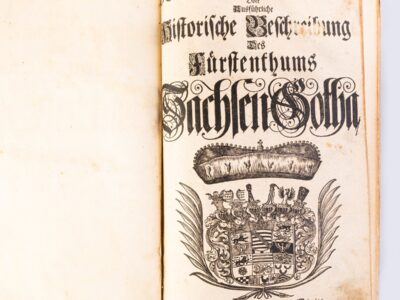 Ausführliche
Historische Beschreibung
Des
Fürstenthums
Sachsen Gotha